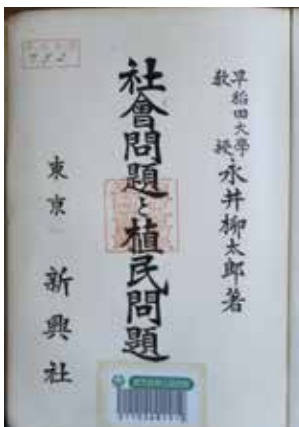 早稲田大學
教授 永井柳太郎著
社會問題と植民問題
東京 新興社